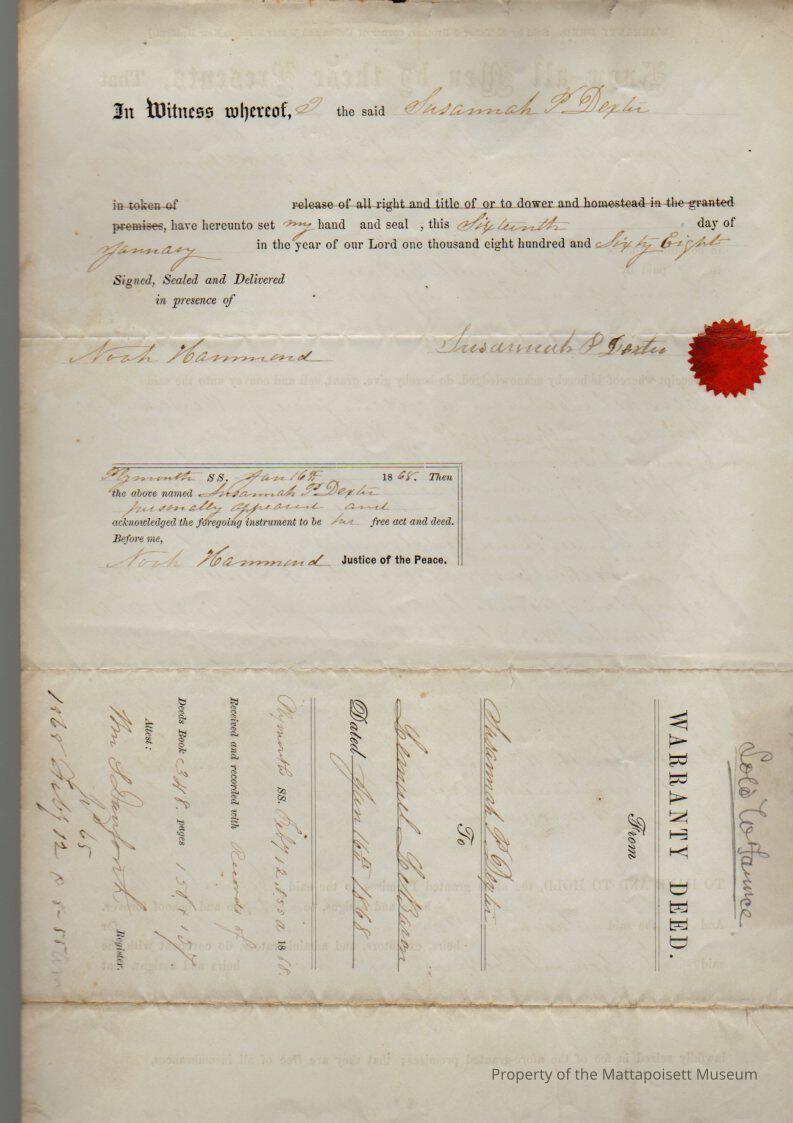 In Witness whereof, I the said Susannah P Dexter
in token of release of all right and title of or to dower and homestead in the granted
premises, have hereunto set my hand and seal , this Sixteenth day of
January in the year of our Lord one thousand eight hundred and Sixty Eight
Signed, Sealed and Delivered
in presence of
Noah Hammond Susannah P Dexter
Plymouth SS. Jan 16th 1868. Then
the above named Susannah P. Dexter
personally appeared and
acknowledged the foregoing instrument to be her free act and deed.
Before me,
Noah Hammond Justice of the Peace.
Sold to
WARRANTY DEED.
From
Susannah P. Dexter
To
Lemuel LeBaron
Dated Jan 16th 1868
Plymouth SS. Feby 12 1868.
Received and recorded with Records of
Deeds Book 348. pages 156 & 157.
Attest:
Wm S Danforth Register.
65
1868 Feby 12
Property of the Mattapoisett Museum